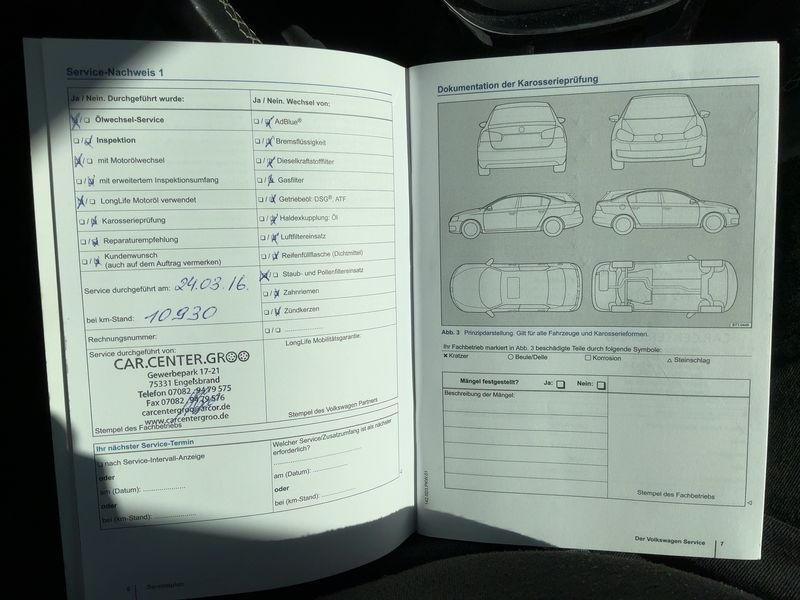 Service-Nachweis 1
Ja / Nein. Durchgeführt wurde:
Ölwechsel-Service
Inspektion
mit Motorölwechsel
mit erweitertem Inspektionsumfang
LongLife Motoröl verwendet
Karosserieprüfung
Reparaturempfehlung
Kundenwunsch
(auch auf dem Auftrag vermerken)
Service durchgeführt am: 24.03.16.
bei km-Stand: 10930
Rechnungsnummer:
Service durchgeführt von:
CAR.CENTER.GROO
Gewerbepark 17-21
75331 Engelsbrand
Telefon 07082 9479 575
Fax 07082 9479 576
carcentergroo@arcor.de
www.carcentergroo.de
Stempel des Fachbetriebs
Ja / Nein. Wechsel von:
AdBlue®
Bremsflüssigkeit
Dieselkraftstofffilter
Gasfilter
Getriebeöl: DSG®, ATF
Haldexkupplung: Öl
Luftfiltereinsatz
Reifenfüllflasche (Dichtmittel)
Staub- und Pollenfiltereinsatz
Zahnriemen
Zündkerzen
LongLife Mobilitätsgarantie:
Stempel des Volkswagen Partners
Ihr nächster Service-Termin
nach Service-Intervall-Anzeige
oder
am (Datum): ....................
oder
bei (km-Stand): ....................
Welcher Service/Zusatzumfang ist als nächster
erforderlich?
am (Datum): ....................
oder
bei (km-Stand): ....................
6 Serviceplan
Dokumentation der Karosserieprüfung
Abb. 3 Prinzipdarstellung. Gilt für alle Fahrzeuge und Karosserieformen.
Ihr Fachbetrieb markiert in Abb. 3 beschädigte Teile durch folgende Symbole:
× Kratzer ○ Beule/Delle □ Korrosion △ Steinschlag
Mängel festgestellt? Ja: Nein:
Beschreibung der Mängel:
Stempel des Fachbetriebs
Der Volkswagen Service 7